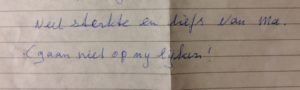 Veel sterkte en liefs van Ma.
(gaan niet op my lijken!